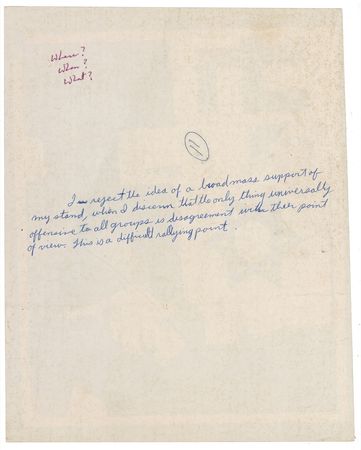 Where?
When?
What?
11
I reject the idea of a broad mass support of
my stand, when I discern that the only thing universally
offensive to all groups is disagreement with their point
of view. This is a difficult rallying point.